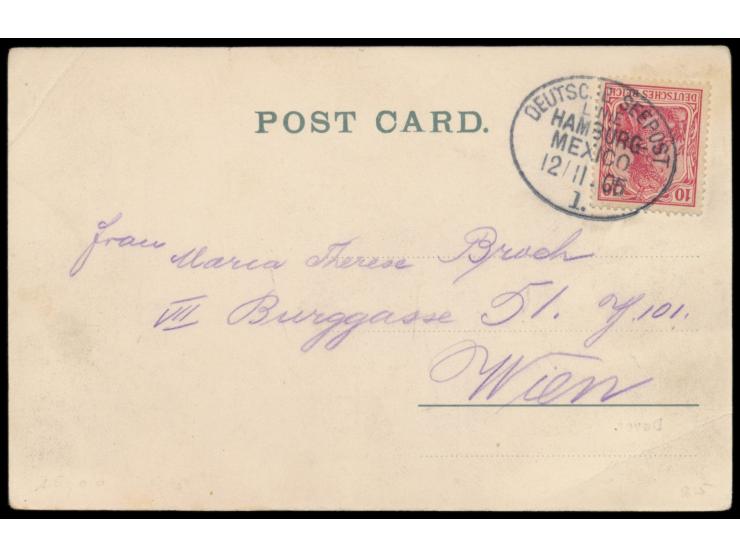 POST CARD.
DEUTSCHE SEEPOST
LINIE
HAMBURG-
MEXICO
12/11.05
1.
DEUTSCHES REICH
10
Frau Maria Therese Broch
VII Burggasse 51.
Wien